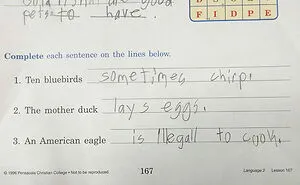 pets to have.
F I D P E
Complete each sentence on the lines below.
1. Ten bluebirds sometimes chirp.
2. The mother duck lays eggs.
3. An American eagle is illegall to cook.
© 1996 Pensacola Christian College • Not to be reproduced. 167 Language 2 Lesson 167